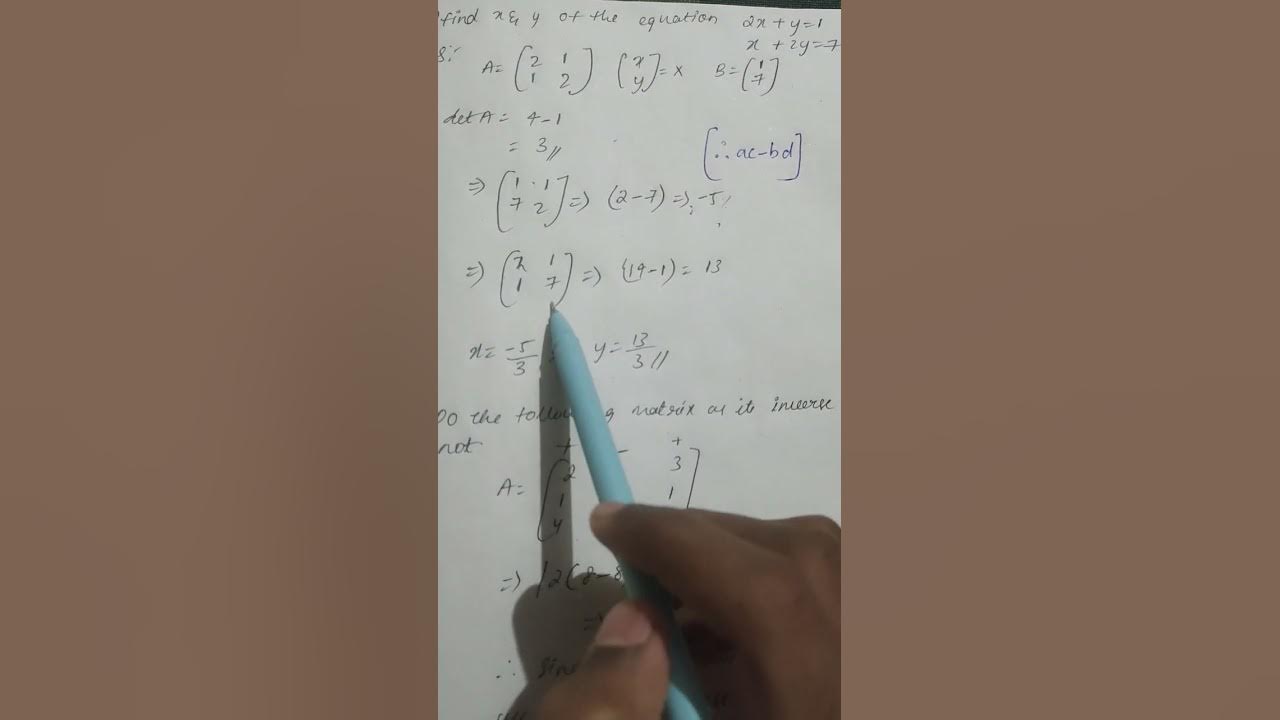 find x & y of the equation 2x + y = 1
x + 2y = 7
A = (2 1 1 2] (x y] = X B = (1 7]
det A = 4 - 1
= 3 //
[∴ ac - bd]
⇒ (1 1 7 2] ⇒ (2 - 7) ⇒ -5 //
⇒ (2 1 1 7] ⇒ (14 - 1) = 13
x = -5/3 y = 13/3 //
the matrix as its inverse
not + - +
A = (2 3
1 1
4
⇒ | 2 ( 8 - 8
⇒
∴ Sin